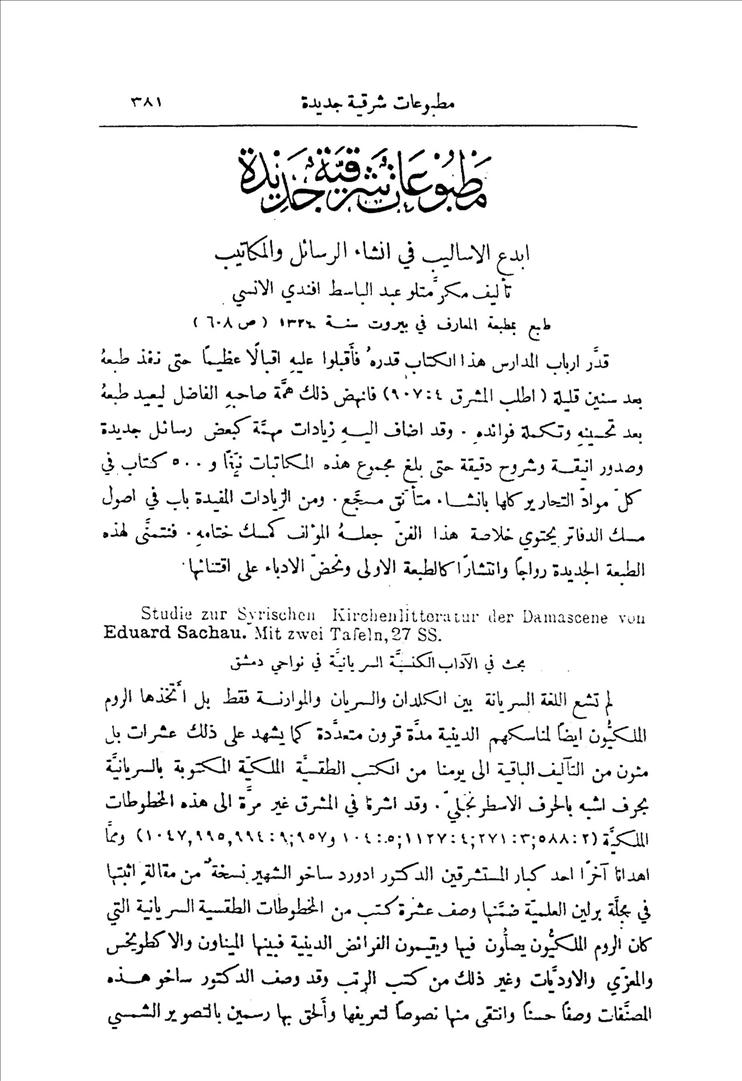 مطبوعات شرقية جديدة ٣٨١
مطبوعات شرقية جديدة
ابدع الاساليب في انشاء الرسائل والمكاتيب
تأليف مكرَّمتلو عبد الباسط افندي الانسي
طبع بمطبعة المعارف في بيروت سنة ١٣٢٤ (ص ٦٠٨)
قدَّر ارباب المدارس هذا الكتاب قدرهُ فأقبلوا عليهِ اقبالًا عظيمًا حتى نفذ طبعهُ
بعد سنين قليلة (اطلب المشرق ٤: ٩٠٧) فانهض ذلك همَّة صاحبهِ الفاضل ليعيد طبعهُ
بعد تحسينهِ وتكملة فوائده. وقد اضاف اليهِ زيادات مهمَّة كبعض رسائل جديدة
وصدور انيقة وشروح دقيقة حتى بلغ مجموع هذه المكاتبات نيّفًا و ٥٠٠ كتاب في
كلّ موادّ التحارير كلها بانشاء متأنق مسجَّع. ومن الزيادات المفيدة باب في اصول
مسك الدفاتر يحتوي خلاصة هذا الفنّ جعلهُ المؤلف كمسك ختامهِ. فنتمنَّى لهذه
الطبعة الجديدة رواجًا وانتشارًا كالطبعة الاولى ونحضّ الادباء على اقتنائها.
Studie zur Syrischen Kirchenlitteratur der Damascene von
Eduard Sachau. Mit zwei Tafeln, 27 SS.
بحث في الآداب الكنسيَّة السريانيَّة في نواحي دمشق
لم تشع اللغة السريانة بين الكلدان والسريان والموارنة فقط بل اتّخذها الروم
الملكيُّون ايضًا لمناسكهم الدينية مدَّة قرون متعدَّدة كما يشهد على ذلك عشرات بل
مئون من التآليف الباقية الى يومنا من الكتب الطقسيَّة الملكيَّة المكتوبة بالسريانيَّة
بحرف اشبه بالحرف الاسطرنجليّ. وقد اشرنا في المشرق غير مرَّة الى هذه المخطوطات
الملكيَّة (٢: ٥٨٨; ٣: ٢٧١; ٤: ١١٢٧; ٥: ١٠٤ و ٩٥٧; ٩: ٩٩٤, ٩٩٥, ١٠٤٧) وممَّا
اهدانا آخرًا احد كبار المستشرقين الدكتور ادورد ساخو الشهير نسخةٌ من مقالةٍ اثبتها
في مجلَّة برلين العلميَّة ضمَّنها وصف عشرة كتب من المخطوطات الطقسية السريانية التي
كان الروم الملكيُّون يصلُّون فيها ويقيمون الفرائض الدينية فبينها الميناون والاكطويخس
والمعزّي والاوديَّات وغير ذلك من كتب الرتب وقد وصف الدكتور ساخو هذه
المصنَّفات وصفًا حسنًا وانتقى منها نصوصًا لتعريفها وألحق بها رسمين بالتصوير الشمسي